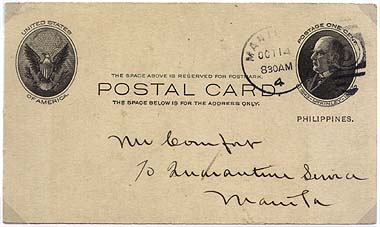 UNITED STATES
OF AMERICA.
POSTAGE ONE CENT
MCKINLEY
MANILA
OCT 14
830AM
4
THE SPACE ABOVE IS RESERVED FOR POSTMARK.
POSTAL CARD.
THE SPACE BELOW IS FOR THE ADDRESS ONLY.
PHILIPPINES.
Mr Comfort
To Quarantine Service
Manila